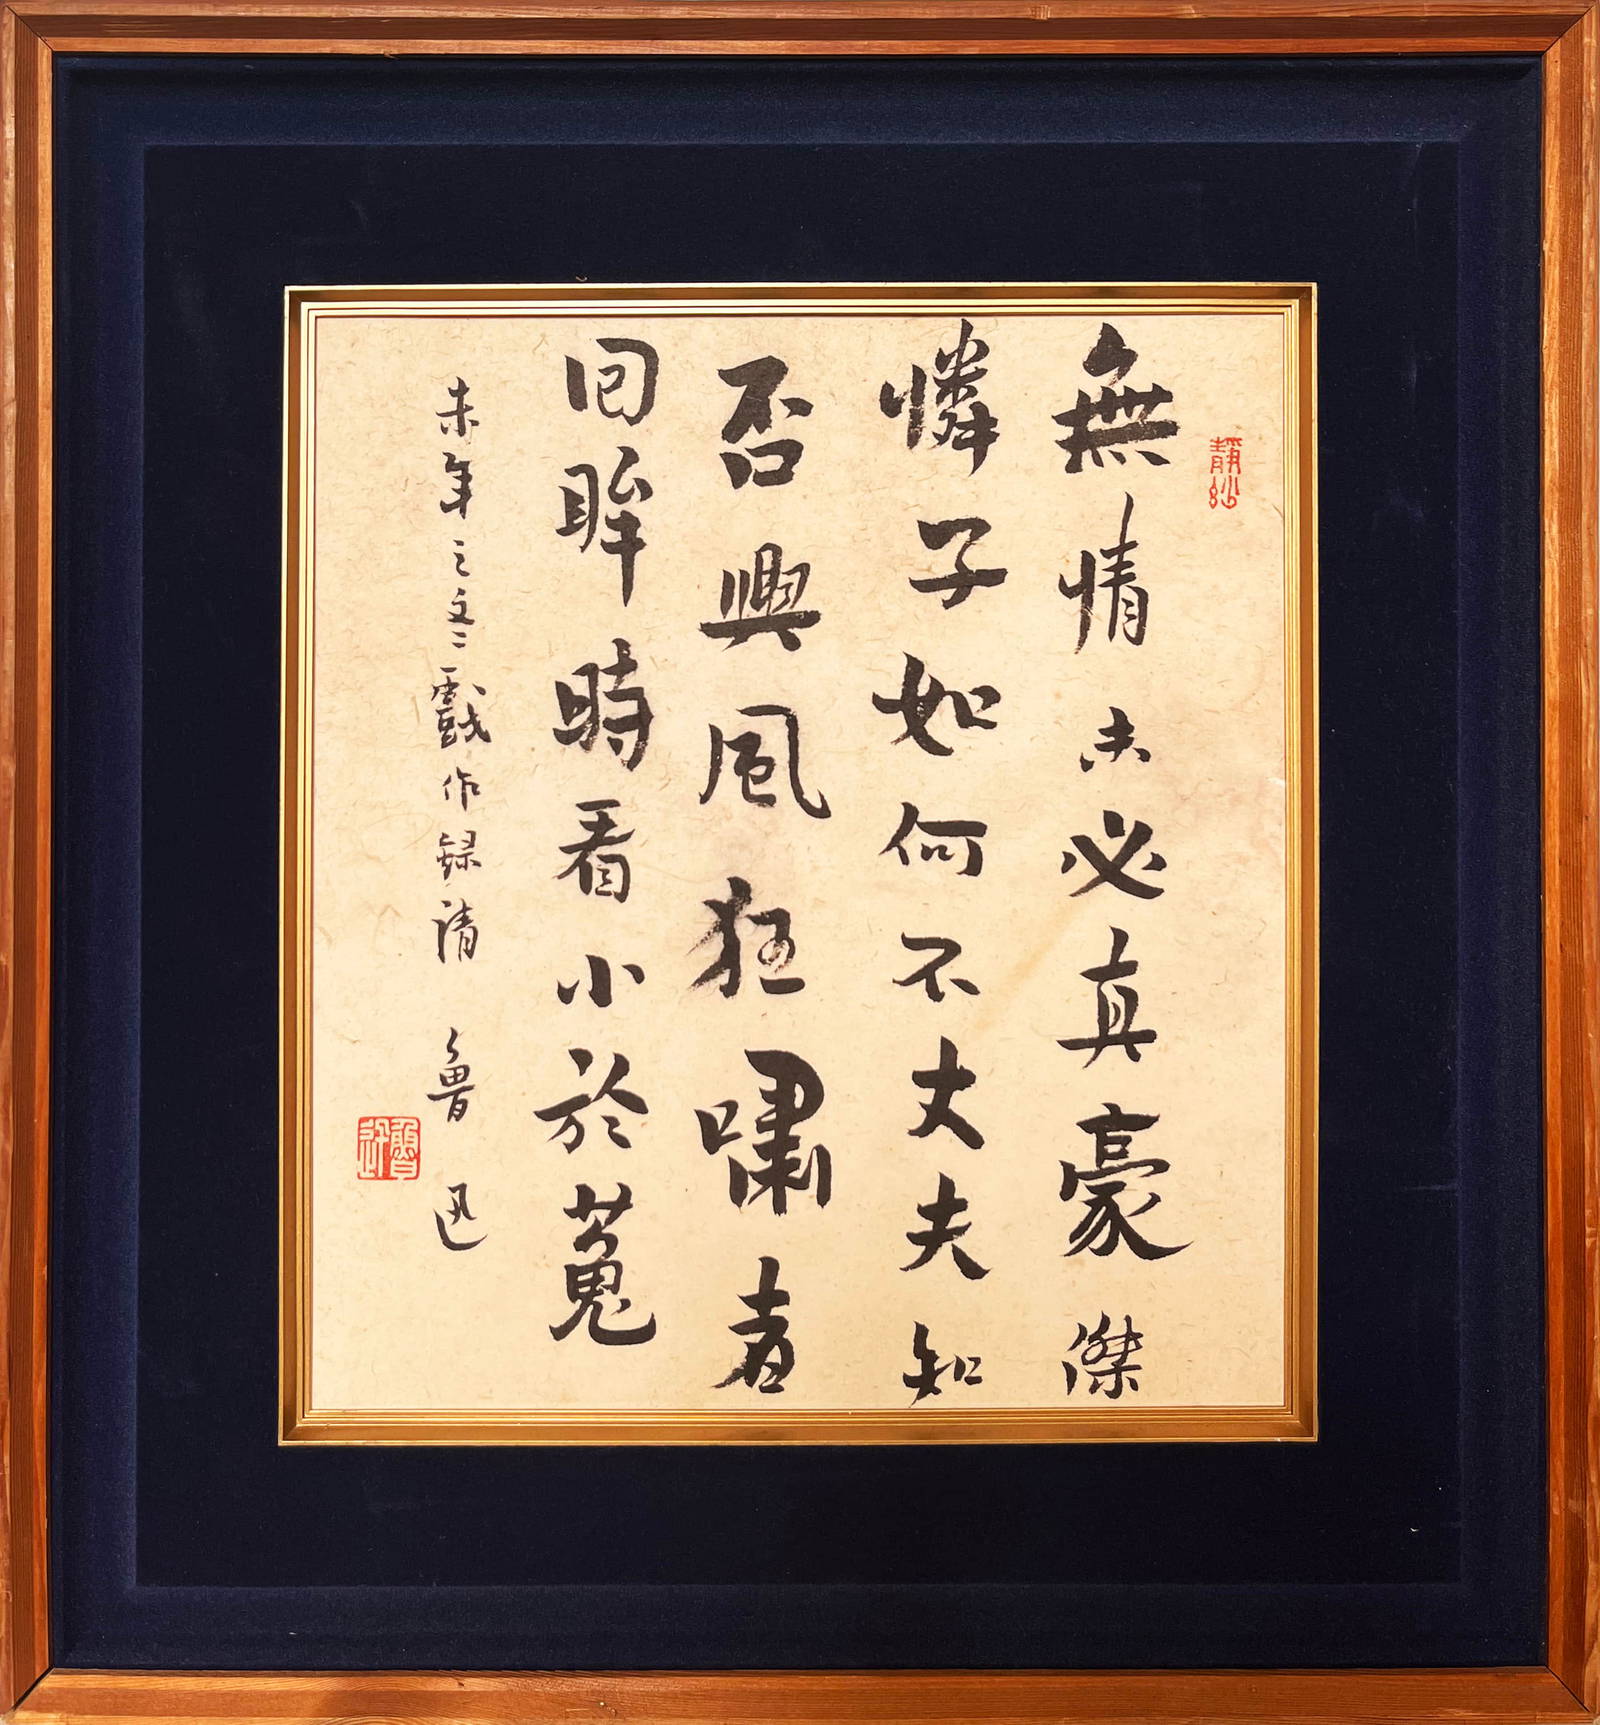 無情未必真豪傑
憐子如何不丈夫知
否興風狂嘯者
回眸時看小於菟
未年之冬戲作錄請 魯迅
魯迅